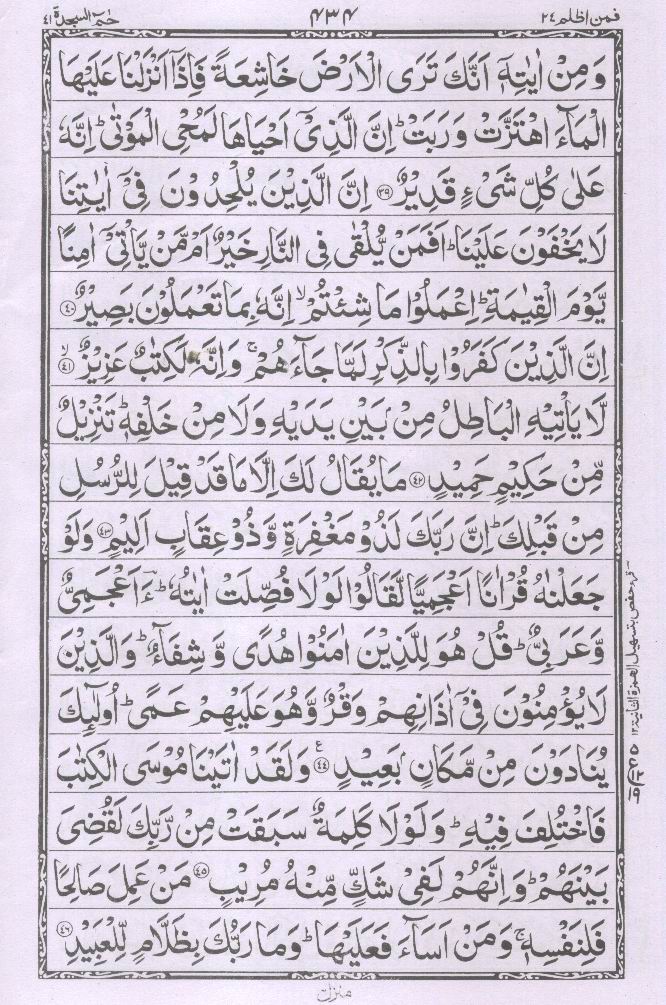 فمن اظلم ٢٤
٤٣٤
حٰمٓ السجدة ٤١
وَمِنْ اٰيٰتِهٖٓ اَنَّكَ تَرَى الْاَرْضَ خَاشِعَةً فَاِذَآ اَنْزَلْنَا عَلَيْهَا
الْمَآءَ اهْتَزَّتْ وَرَبَتْ ؕ اِنَّ الَّذِيْٓ اَحْيَاهَا لَمُحْيِ الْمَوْتٰى ؕ اِنَّهٗ
عَلٰى كُلِّ شَيْءٍ قَدِيْرٌ ﴿٣٩﴾ اِنَّ الَّذِيْنَ يُلْحِدُوْنَ فِيْٓ اٰيٰتِنَا
لَا يَخْفَوْنَ عَلَيْنَا ؕ اَفَمَنْ يُّلْقٰى فِى النَّارِ خَيْرٌ اَمْ مَّنْ يَّاْتِيْٓ اٰمِنًا
يَّوْمَ الْقِيٰمَةِ ؕ اِعْمَلُوْا مَا شِئْتُمْ ۙ اِنَّهٗ بِمَا تَعْمَلُوْنَ بَصِيْرٌ ﴿٤٠﴾
اِنَّ الَّذِيْنَ كَفَرُوْا بِالذِّكْرِ لَمَّا جَآءَهُمْ ۚ وَاِنَّهٗ لَكِتٰبٌ عَزِيْزٌ ﴿٤١﴾ ۙ
لَّا يَاْتِيْهِ الْبَاطِلُ مِنْۢ بَيْنِ يَدَيْهِ وَلَا مِنْ خَلْفِهٖ ؕ تَنْزِيْلٌ
مِّنْ حَكِيْمٍ حَمِيْدٍ ﴿٤٢﴾ مَا يُقَالُ لَكَ اِلَّا مَا قَدْ قِيْلَ لِلرُّسُلِ
مِنْ قَبْلِكَ ؕ اِنَّ رَبَّكَ لَذُوْ مَغْفِرَةٍ وَّذُوْ عِقَابٍ اَلِيْمٍ ﴿٤٣﴾ وَلَوْ
جَعَلْنٰهُ قُرْاٰنًا اَعْجَمِيًّا لَّقَالُوْا لَوْلَا فُصِّلَتْ اٰيٰتُهٗ ؕ ءَؔاَعْجَمِيٌّ
وَّعَرَبِيٌّ ؕ قُلْ هُوَ لِلَّذِيْنَ اٰمَنُوْا هُدًى وَّشِفَآءٌ ؕ وَالَّذِيْنَ
لَا يُؤْمِنُوْنَ فِيْٓ اٰذَانِهِمْ وَقْرٌ وَّهُوَ عَلَيْهِمْ عَمًى ؕ اُولٰٓئِكَ
يُنَادَوْنَ مِنْ مَّكَانٍۭ بَعِيْدٍ ﴿٤٤﴾ ع وَلَقَدْ اٰتَيْنَا مُوْسَى الْكِتٰبَ
فَاخْتُلِفَ فِيْهِ ؕ وَلَوْلَا كَلِمَةٌ سَبَقَتْ مِنْ رَّبِّكَ لَقُضِيَ
بَيْنَهُمْ ؕ وَاِنَّهُمْ لَفِيْ شَكٍّ مِّنْهُ مُرِيْبٍ ﴿٤٥﴾ مَنْ عَمِلَ صَالِحًا
فَلِنَفْسِهٖ ۚ وَمَنْ اَسَآءَ فَعَلَيْهَا ؕ وَمَا رَبُّكَ بِظَلَّامٍ لِّلْعَبِيْدِ ﴿٤٦﴾
منزل